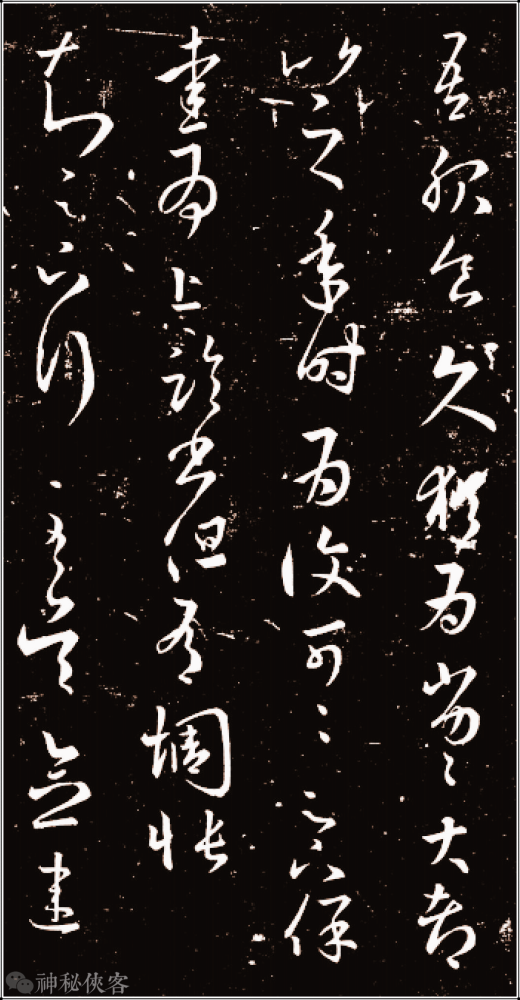 吾服食久猶為劣劣大都
比之年時為復可可足下保
愛為上臨書但有惆悵
知足下行至吳念違
神秘俠客